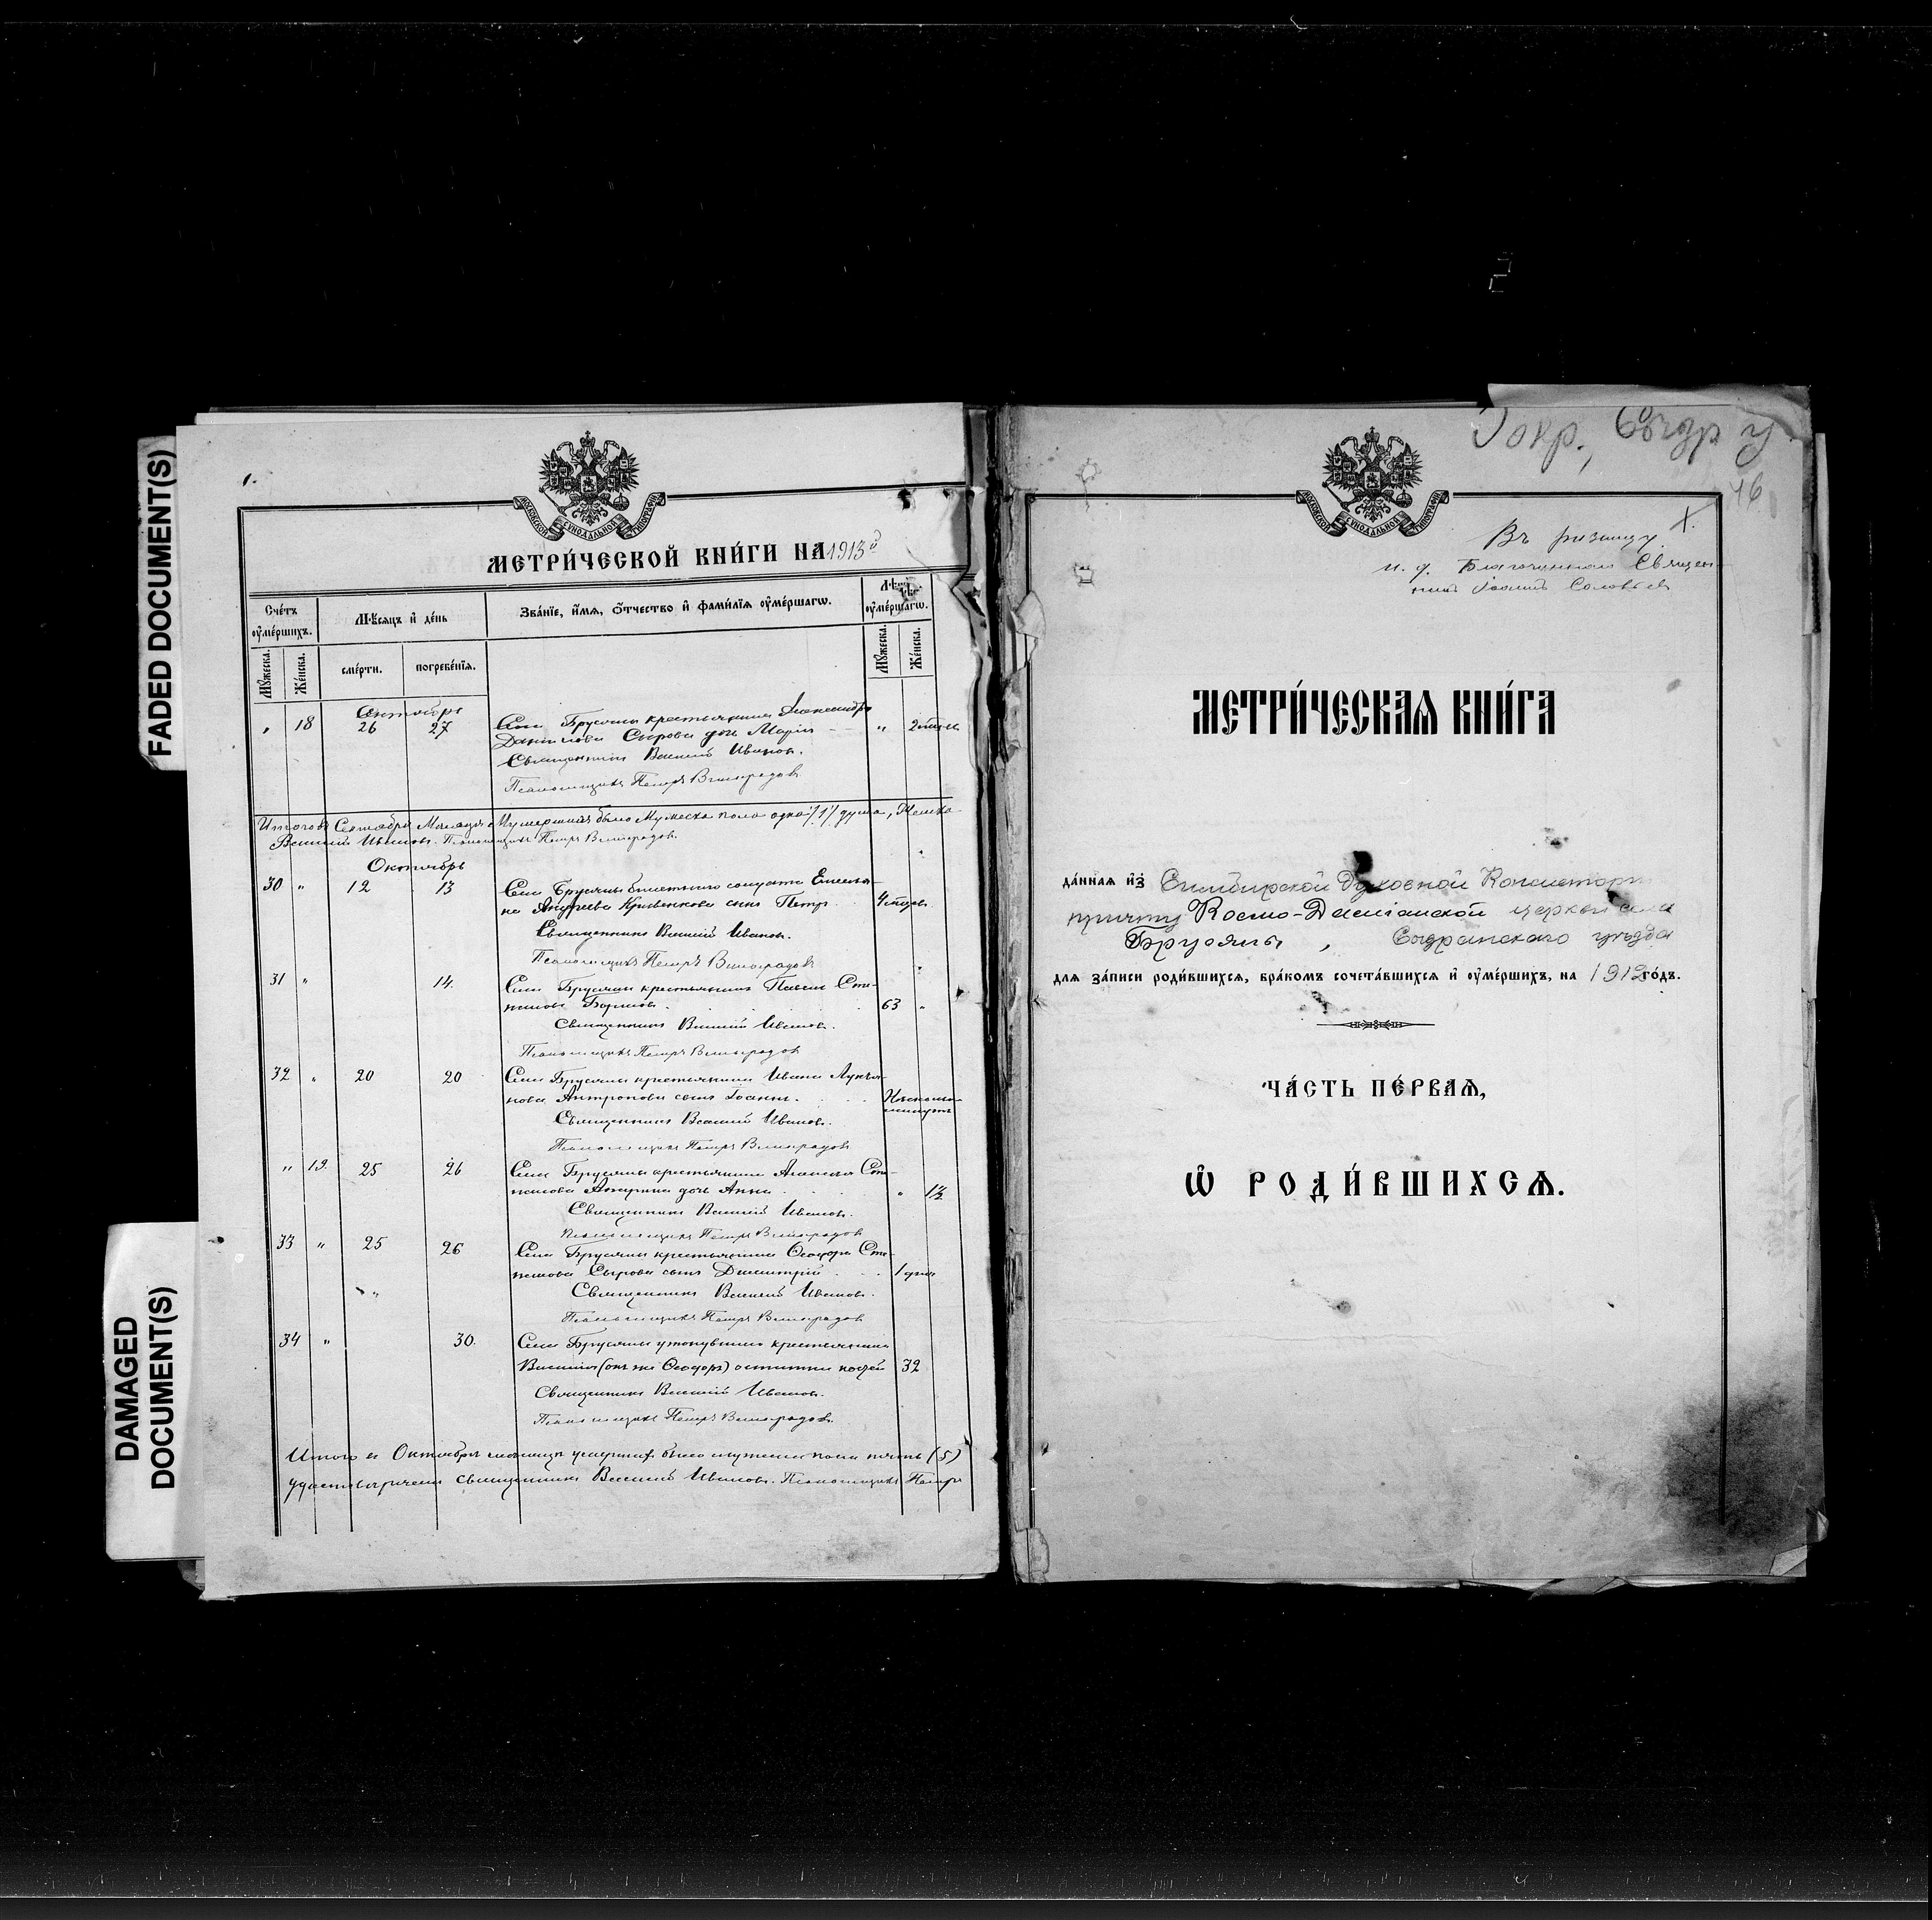 FADED DOCUMENT(S)
DAMAGED
DOCUMENT(S)
1.
МОСКОВСКОЙ СУНОДАЛЬНОЙ ТИПОГРАФІИ
МЕТРИ́ЧЕСКОЙ КНИ́ГИ НА 1913й
Сче́тъ ᲂу҆ме́ршихъ.
Мѣ́сяцъ и҆ де́нь
Зва́нїе, и҆́мѧ, ѻ҆́тчество и҆ фами́лїѧ ᲂу҆ме́ршагѡ.
Лѣ́та ᲂу҆ме́ршагѡ.
Мꙋ́жеска.
Же́нска.
сме́рти.
погребе́нїѧ.
Мꙋ́жеска.
Же́нска.
Сентябрь
" 18 26 27 Села Брусяны крестьянина Александра
Данилова Сырова дочь Марія " 2 мѣсяц.
Священникъ Василій Ивановъ.
Псаломщикъ Петръ Виноградовъ
Итого въ Сентябрѣ Мѣсяцѣ Умершихъ было Мужеска пола одна /1/ душа, Женска
Василій Ивановъ. Псаломщикъ Петръ Виноградовъ.
Октябрь
30 " 12 13 Села Брусяны билетнаго солдата Емелья-
на Андреева Кривенкова сынъ Петръ
Священникъ Василій Ивановъ.
Псаломщикъ Петръ Виноградовъ
31 " 14. Села Брусяны крестьянинъ Павелъ Сте-
пановъ 63 "
Священникъ Василій Ивановъ.
Псаломщикъ Петръ Виноградовъ
32 " 20 20 Села Брусяны крестьянина Ивана Лукья-
нова Антропова сынъ Іоаннъ. Нѣсколько минутъ
Священникъ Василій Ивановъ.
Псаломщикъ Петръ Виноградовъ
" 19. 25 26 Села Брусяны крестьянина Сте-
панова дочь Анна " 1½
Священникъ Василій Ивановъ.
Псаломщикъ Петръ Виноградовъ
33 " 25 26 Села Брусяны крестьянина Ѳеодора Сте-
панова Сырова сынъ Димитрій 1 день
Священникъ Василій Ивановъ.
Псаломщикъ Петръ Виноградовъ
34 " 30. Села Брусяны утонувшаго крестьянина
Василія (онъ же Ѳеодоръ) останки костей 32
Священникъ Василій Ивановъ.
Псаломщикъ Петръ Виноградовъ.
Итого въ Октябрѣ мѣсяцѣ умершихъ было мужеска пола пять (5)
священникъ Василій Ивановъ. Псаломщикъ Петръ
1 окр., Сызр у
46
МОСКОВСКОЙ СУНОДАЛЬНОЙ ТИПОГРАФІИ
Въ ризницу.
и. д. Благочиннаго Священ-
никъ Іоаннъ Соловьевъ
МЕТРИ́ЧЕСКАѦ КНИ́ГА
да́ннаѧ и҆з̾ Симбирской Духовной Консисторіи
причту Космо-Даміанской церкви села
Брусяны, Сызранскаго уѣзда
длѧ за́писи роди́вшихсѧ, бра́комъ сочета́вшихсѧ и҆ ᲂу҆ме́ршихъ, на 1912 го́дъ.
ЧА́СТЬ ПЕ́РВАѦ,
Ѡ҆ РОДИ́ВШИХСѦ.